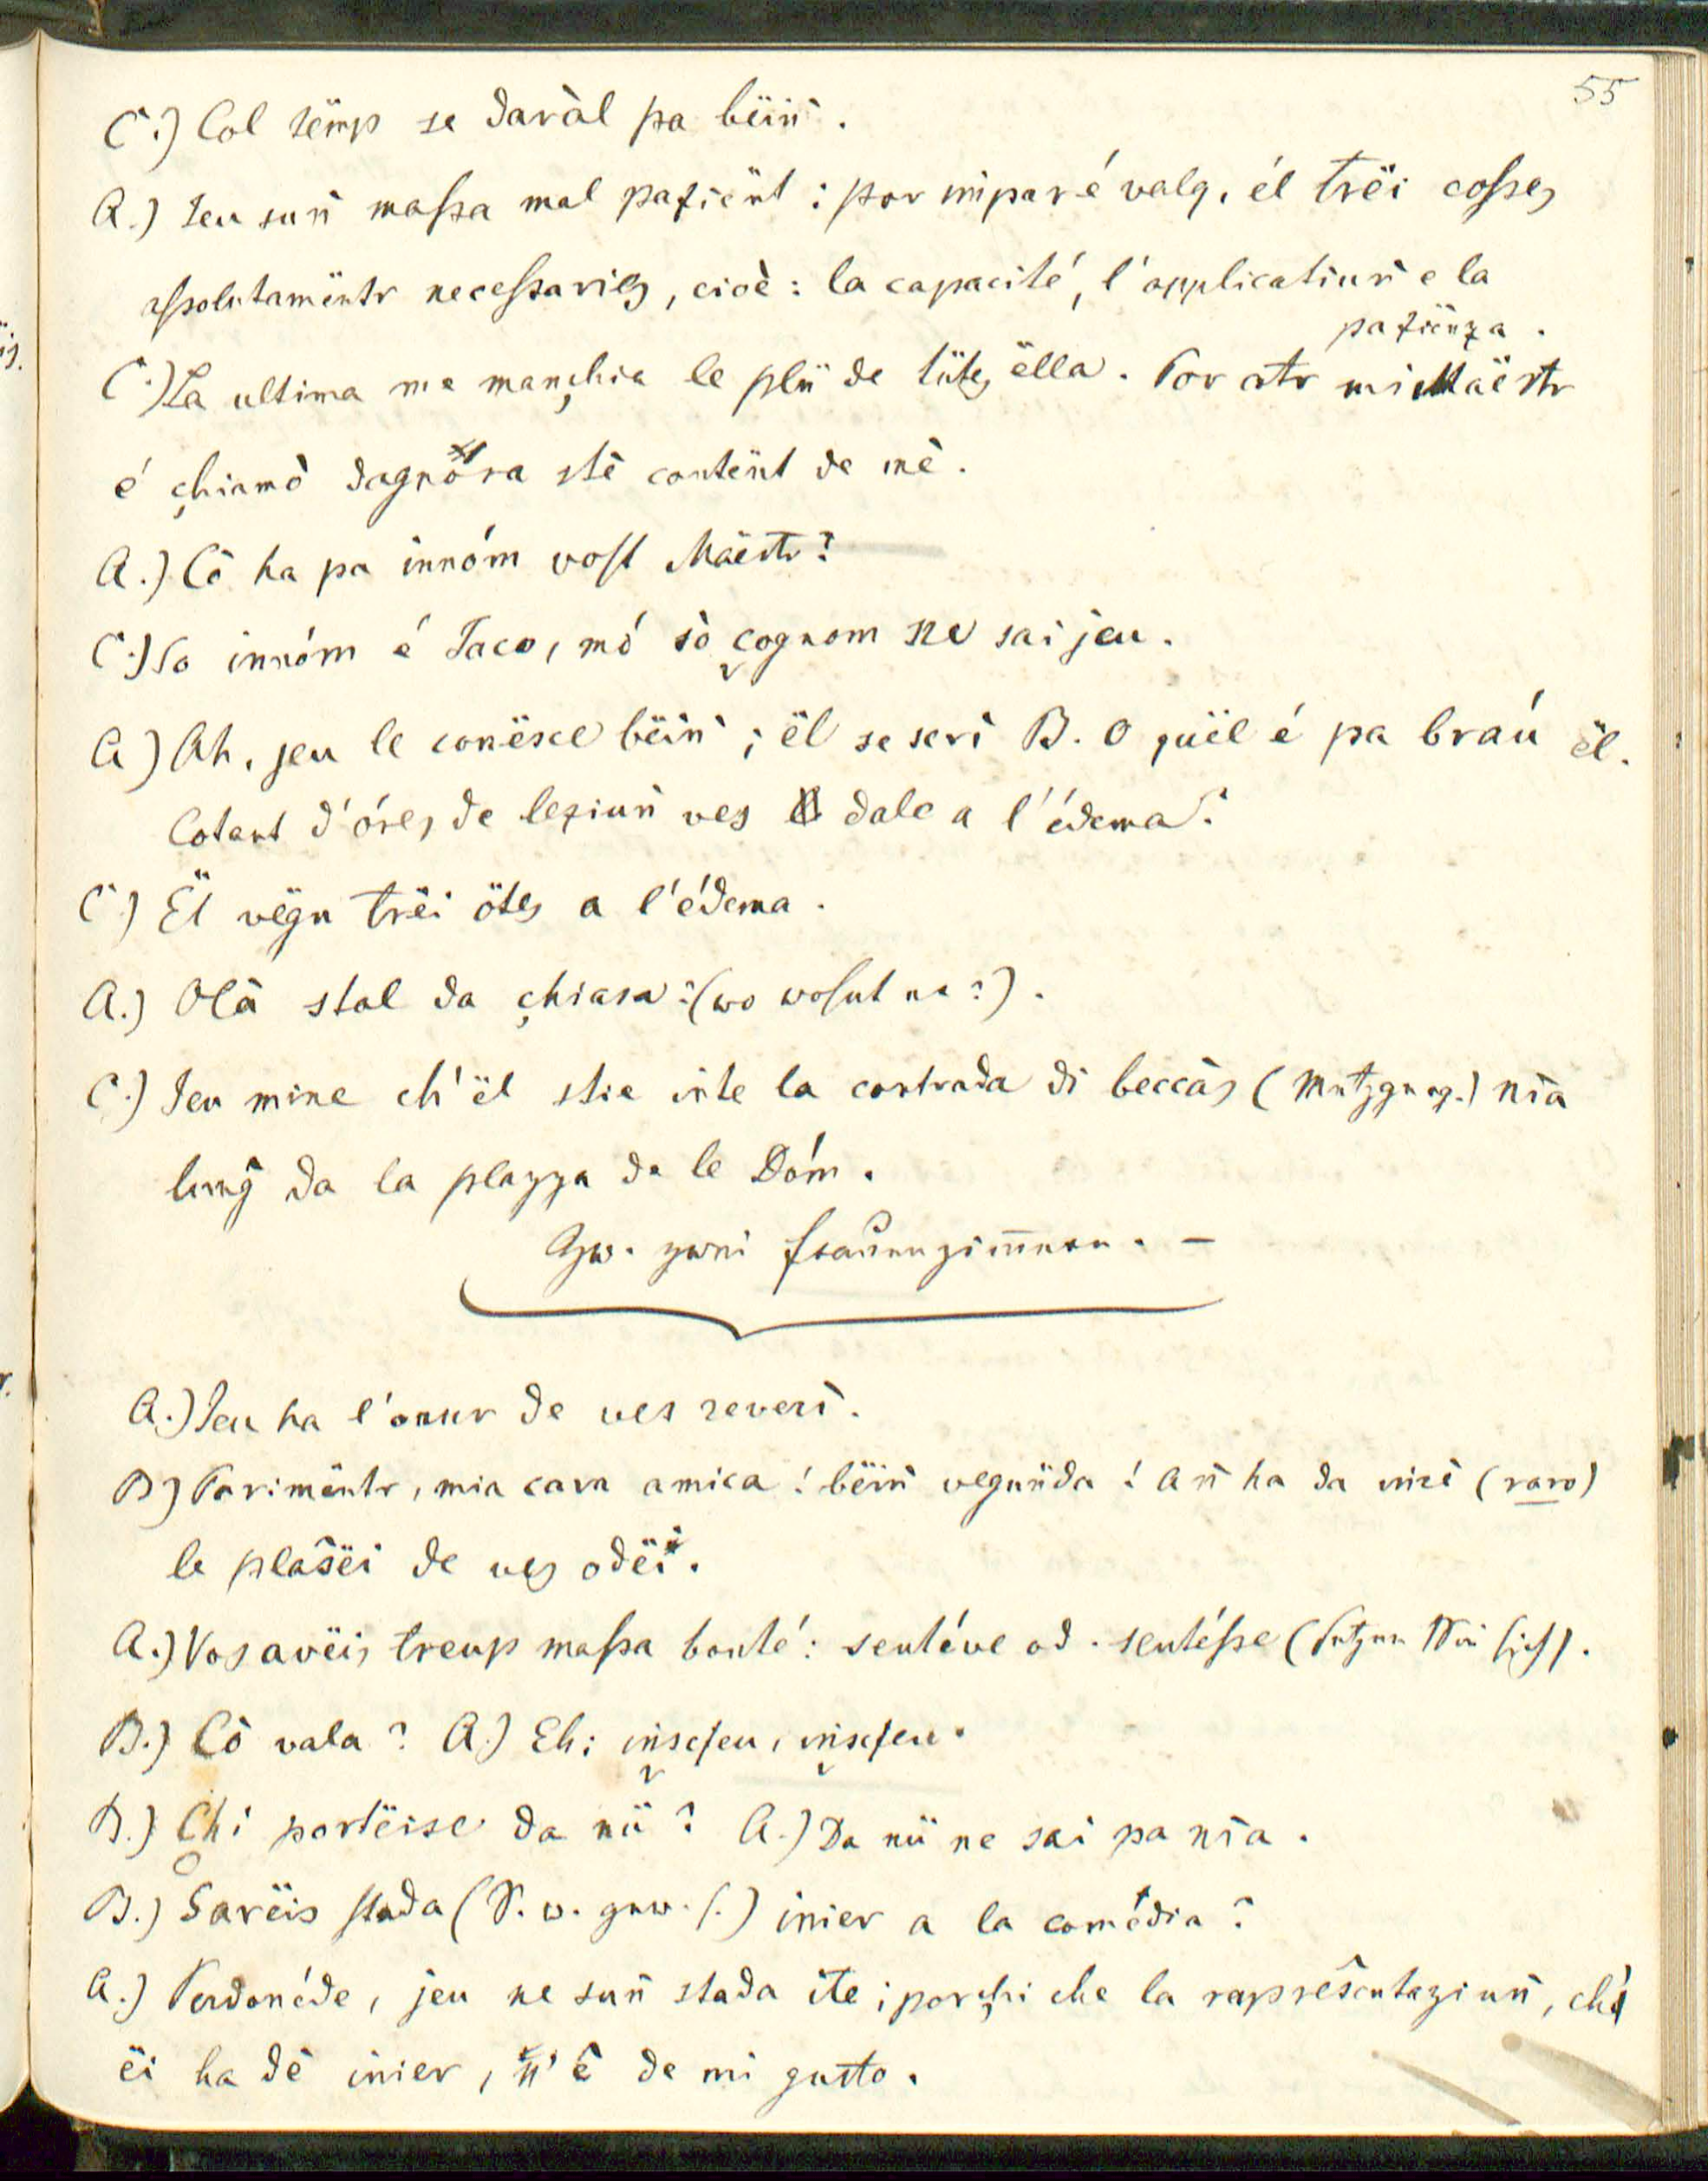 55
C.) Col tëmp se daràl pa bëiñ.
A.) Jeu suñ maſsa mal pazïënt: por imparé valg, él trëi coſses
aſsolutamëntr neceſsaries, cioè: la capacité, l'applicatiuñ e la
pazïënza.
C.) La ultima me mançhia le plü de tütes ëlla. Por atr mi Maëstr
é çhiamò dagnöra stè contënt de mè.
A.) Cò ha pa innóm voſt Maëstr?
C.) So innóm é Jaco, mó sò cognom ne sai jeu.
A.) Ah, jeu le conësce bëiñ; ël se scrì B. O quël é pa braú ël.
Cotant d'óres de leziuñ ves dale a l'édema?
C.) Ël vëgn trëi ötes a l'édema.
A.) Olà stal da çhiasa? (wo wohnt er?).
C.) Jeu mine ch'ël stie inte la contrada di beccàs (Metzgerg.) nia
lunĝ da la plazza de le Dóm.
Gſp. zwei Frauenzimmer. –
A.) Jeu ha l'onur de ves reverì.
B.) Parimëntr, mia cara amica! bëiñ vegnüda! Añ ha da inré (raro)
le plasëi de ves odëi.
A.) Vos avëis treup maſsa bonté: sentéve od. sentéſse (Setzen Sie sich).
B.) Cò vala? A.) Eh; insejeu, insejeu.
B.) Chi portëise da nü? A.) Da nü ne sai pa nia.
B.) Sarëis stada (S. w. gew. s.) inier a la comédia?
A.) Perdonéde, jeu ne suñ stada ite; porçhi che la rapresentaziuñ, ch'
ëi ha dè inier, n'é de mi gusto.